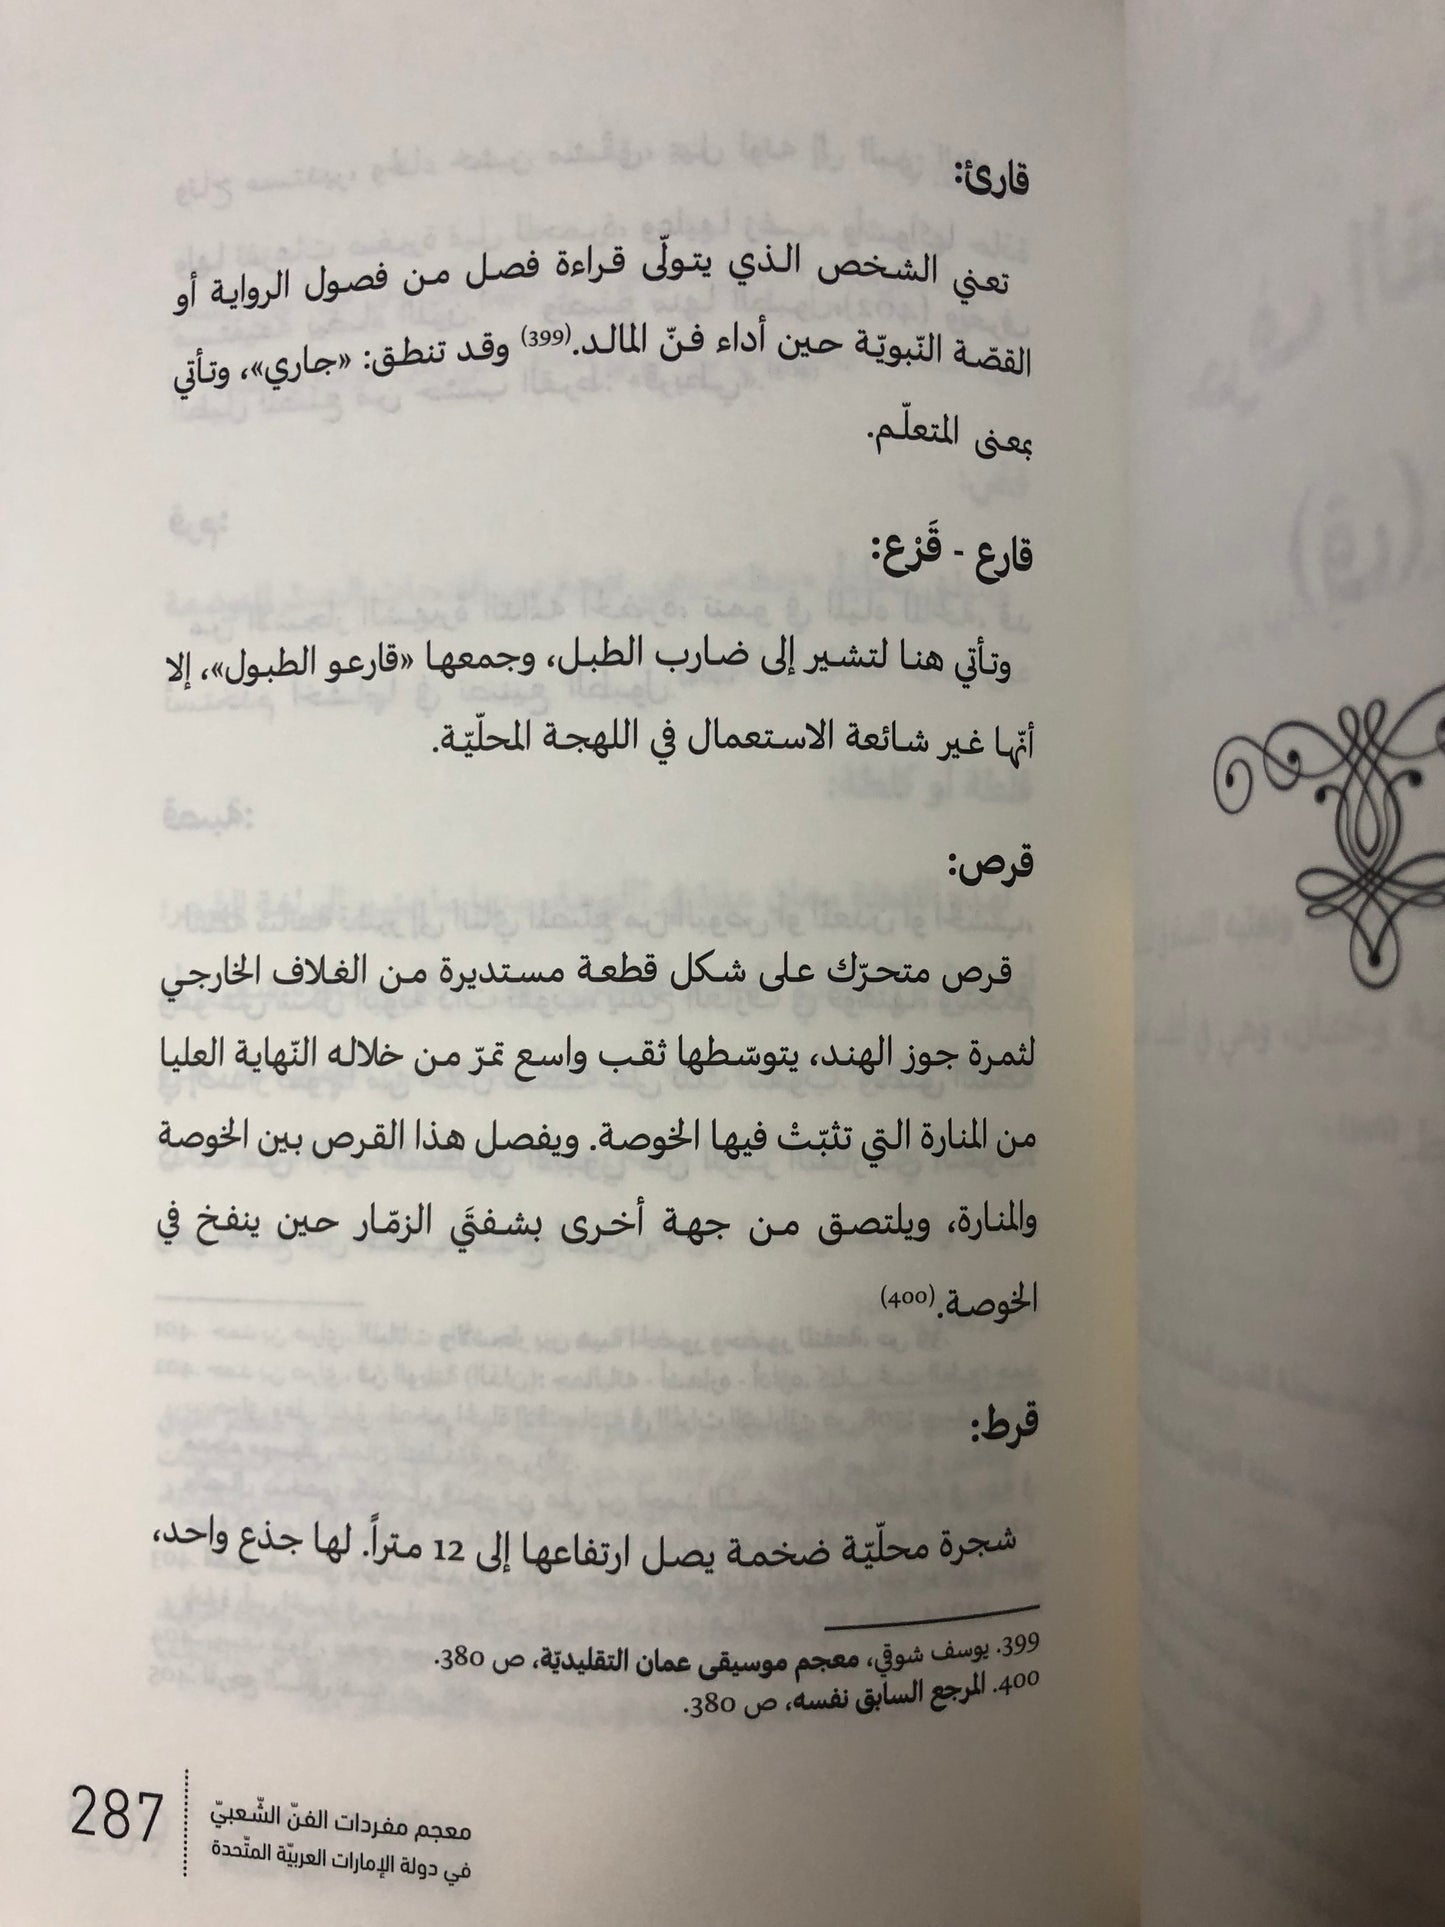 قارئ:
تعني الشخص الذي يتولّى قراءة فصل من فصول الرواية أو
القصّة النّبويّة حين أداء فنّ المالد.(399) وقد تنطق: «جاري»، وتأتي
بمعنى المتعلّم.
قارع - قَرْع:
وتأتي هنا لتشير إلى ضارب الطبل، وجمعها «قارعو الطبول»، إلا
أنّها غير شائعة الاستعمال في اللهجة المحليّة.
قرص:
قرص متحرّك على شكل قطعة مستديرة من الغلاف الخارجي
لثمرة جوز الهند، يتوسّطها ثقب واسع تمرّ من خلاله النّهاية العليا
من المنارة التي تثبّتْ فيها الخوصة. ويفصل هذا القرص بين الخوصة
والمنارة، ويلتصق من جهة أخرى بشفتَي الزمّار حين ينفخ في
الخوصة.(400)
قرط:
شجرة محليّة ضخمة يصل ارتفاعها إلى 12 متراً. لها جذع واحد،
399. يوسف شوقي، معجم موسيقى عمان التقليديّة، ص 380.
400. المرجع السابق نفسه، ص 380.
معجم مفردات الفنّ الشّعبيّ
في دولة الإمارات العربيّة المتّحدة
287